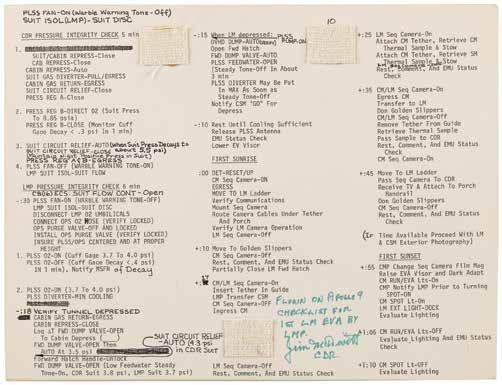 PLSS FAN-ON (Warble Warning Tone-Off)
SUIT ISOL (LMP) - SUIT DISC
CDR PRESSURE INTEGRITY CHECK 5 min
SUIT/CABIN REPRESS-Close
CAB REPRESS-Close
CABIN REPRESS-Auto
SUIT GAS DIVERTER-PULL/EGRESS
CABIN GAS RETURN-EGRESS
SUIT CIRCUIT RELIEF-Close
PRESS REG A-Close
2. PRESS REG B-DIRECT O2 (Suit Press
To 0.85 psia)
PRESS REG B-CLOSE (Monitor Cuff
Gage Decay < .3 psi In 1 min)
3. SUIT CIRCUIT RELIEF-AUTO (when Suit Press Decays to
SUIT CIRCUIT RELIEF-close about 5.5 psi)
(Maintain slight Positive Press in Suit)
PRESS REG A&B-EGRESS
4. PLSS FAN-OFF (WARBLE WARNING TONE-ON)
LMP SUIT ISOL-SUIT FLOW
LMP PRESSURE INTEGRITY CHECK 6 min
CB(16) ECS: SUIT FLOW CONT - Open
-:30 PLSS FAN-ON (WARBLE WARNING TONE-OFF)
LMP SUIT ISOL-SUIT DISC
DISCONNECT LMP O2 UMBILICALS
CONNECT OPS O2 HOSE (VERIFY LOCKED)
OPS PURGE VALVE-OFF AND LOCKED
INSTALL OPS PURGE VALVE (VERIFY LOCKED)
INSURE PLSS/OPS CENTERED AND AT PROPER
HEIGHT
1. PLSS O2-ON (Cuff Gage 3.7 To 4.0 psi)
PLSS O2-OFF (Cuff Gage Decay < .4 psi
IN 1 min), Notify MSFN of Decay
2. PLSS O2-ON (3.7 To 4.0 psi)
PLSS DIVERTER-MIN COOLING
-:18 VERIFY TUNNEL DEPRESSED
CABIN GAS RETURN-EGRESS
CABIN REPRESS-Close
FWD DUMP VALVE-OPEN
To Cabin Depress
FWD DUMP VALVE-OPEN Then
AUTO At 3.5 psi
SUIT CIRCUIT RELIEF
-AUTO (4.3 psi
in CDR Suit
Forward Hatch Handle-Unlock
FWD DUMP VALVE-OPEN (Low Feedwater Steady
Tone-On, CDR Suit 3.8 psi, LMP Suit 3.7 psi)
10
-:15 When LM depressed:
OVHD DUMP-AUTO PLSS PUMP-ON
Open Fwd Hatch
FWD DUMP VALVE-AUTO
PLSS FEEDWATER-OPEN
(Steady Tone-Off In About
3 min
PLSS DIVERTER May be Put
In MAX As Soon as
Steady Tone-Off
Notify CSM "GO" For
Depress
-:10 Rest Until Cooling Sufficient
Release PLSS Antenna
EMU Status Check
Lower EV Visor
FIRST SUNRISE
:00 DET-RESET/UP
CM Seq Camera-ON
EGRESS
MOVE To LM Ladder
Verify Communications
Mount Seq Camera
Route Camera Cables Under Tether
And Porch
Verify LM Camera Operation
LM Seq Camera-Off
+:10 Move To Golden Slippers
CM Seq Camera-Off
Rest, Comment, And EMU Status Check
Partially Close LM Fwd Hatch
CM/LM Seq Camera-On
Insert Tether In Guide
LMP Transfer CSM
CM Seq Camera-Off
Ingress CM
FLOWN ON APOLLO 9
CHECKLIST FOR
1st LM EVA BY
LMP.
Jim McDivitt
CDR
+:25 LM Seq Camera-On
Attach CM Tether, Retrieve CM
Thermal Sample & Stow
Attach CM Tether, Retrieve SM
Thermal Sample & Stow
Rest, Comment, And EMU Status
Check
+:35 CM/LM Seq Camera-On
Egress CM
Transfer to LM
Don Golden Slippers
CM Seq Camera-Off
Remove Tether From Guide
Retrieve Thermal Sample
Pass Sample to CDR
Rest, Comment, And EMU Status
Check
CM Seq Camera-On
+:45 Move To LM Ladder
Pass Seq Camera To CDR
Receive TV & Attach To Porch
Handrail
Don Golden Slippers
CM Seq Camera-Off
Rest, Comment, And EMU Status
Check
(If Time Available Proceed With LM
& CSM Exterior Photography)
FIRST SUNSET
+:55 CMP Change Seq Camera Film Mag
Raise EVA Visor and Dark Adapt
CM RUN/EVA Lts-On
CMP Notify LMP Prior to Turning
SPOT-ON
CM SPOT Lt-On
LM EXT LIGHT-DOCK
Evaluate Lighting
+1:05 CM RUN/EVA Lts-Off
Evaluate Lighting And EMU Status
Check
+1:10 CM SPOT Lt-Off
Evaluate Lighting